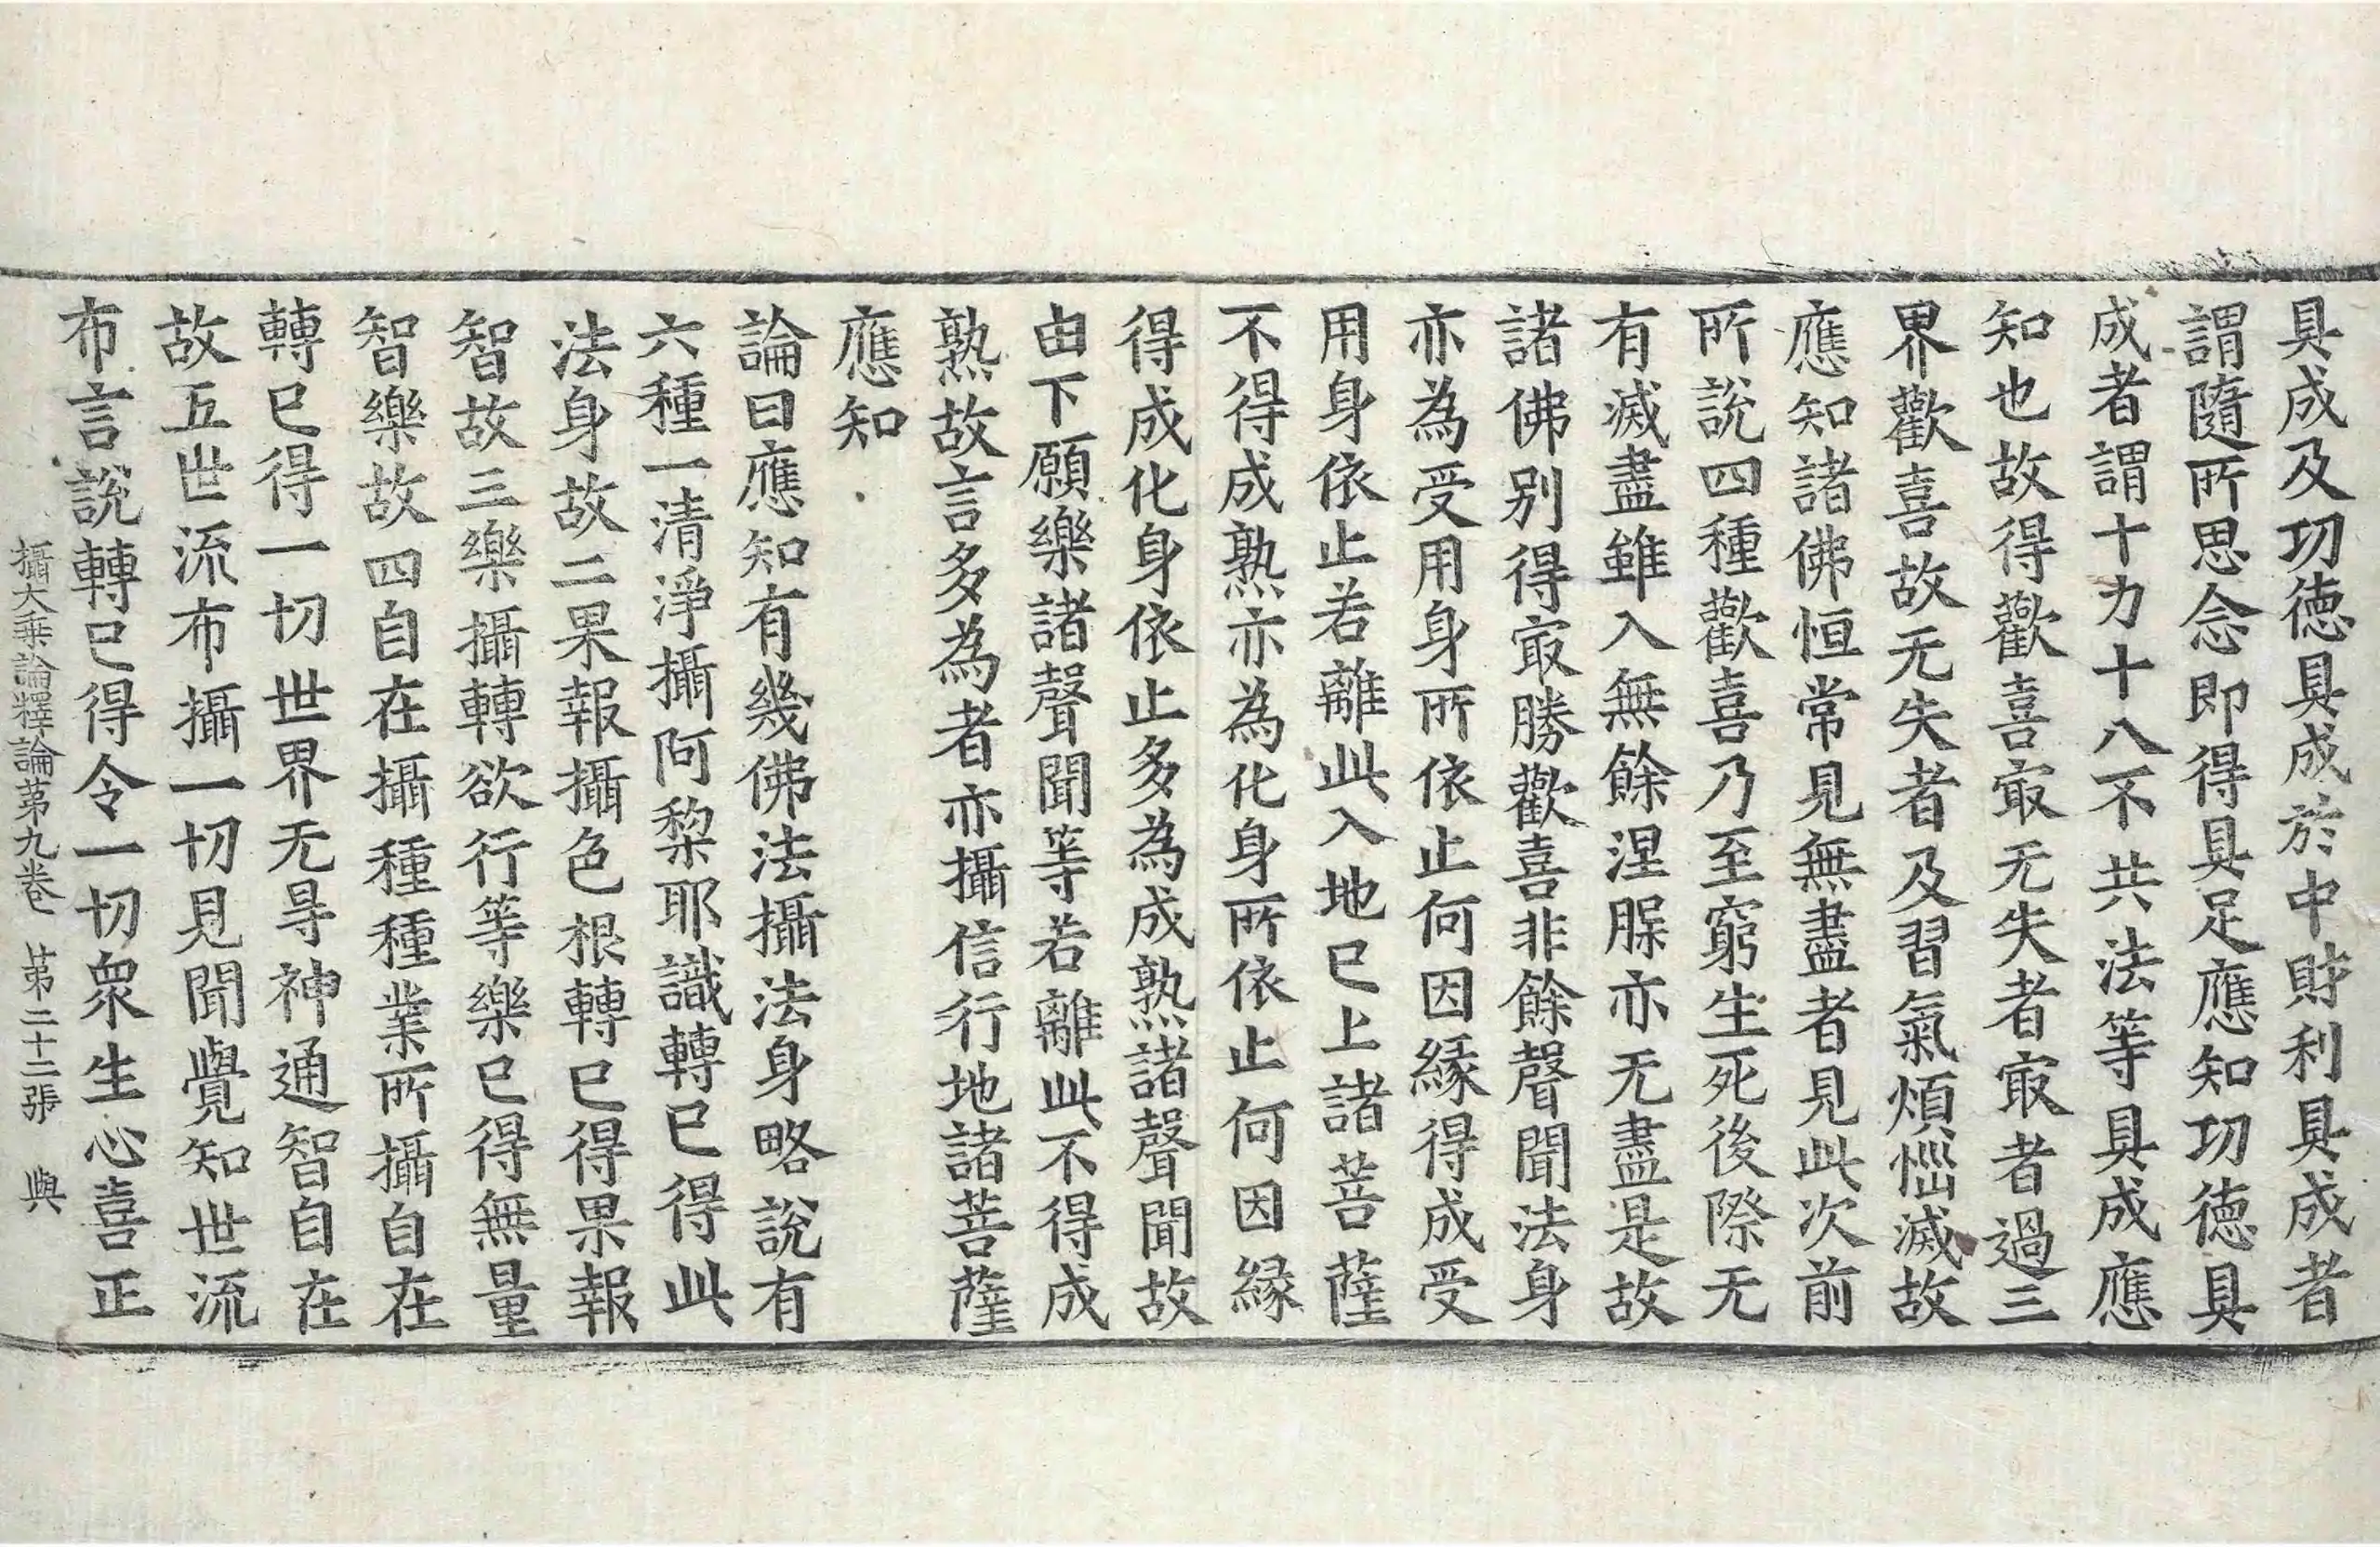 具成及功德具成於中財利具成者
謂隨所思念即得具足應知功德具
成者謂十力十八不共法等具成應
知也故得歡喜㝡无失者㝡者過三
界歡喜故无失者及習氣煩惱滅故
應知諸佛恒常見無盡者見此次前
所說四種歡喜乃至窮生死後際无
有滅盡雖入無餘涅䏶亦无盡是故
諸佛別得㝡勝歡喜非餘聲聞法身
亦為受用身所依止何因縁得成受
用身依止若離此入地已上諸菩薩
不得成熟亦為化身所依止何因縁
得成化身依止多為成熟諸聲聞故
由下願樂諸聲聞等若離此不得成
熟故言多為者亦攝信行地諸菩薩
應知
論曰應知有幾佛法攝法身略說有
六種一清淨攝阿梨耶識轉已得此
法身故二果報攝色根轉已得果報
智故三樂攝轉欲行等樂已得無量
智樂故四自在攝種種業所攝自在
轉已得一切世界无㝵神通智自在
故五世流布攝一切見聞覺知世流
布言說轉已得令一切衆生心喜正
攝大乗論釋論第九卷 第二十二張 與